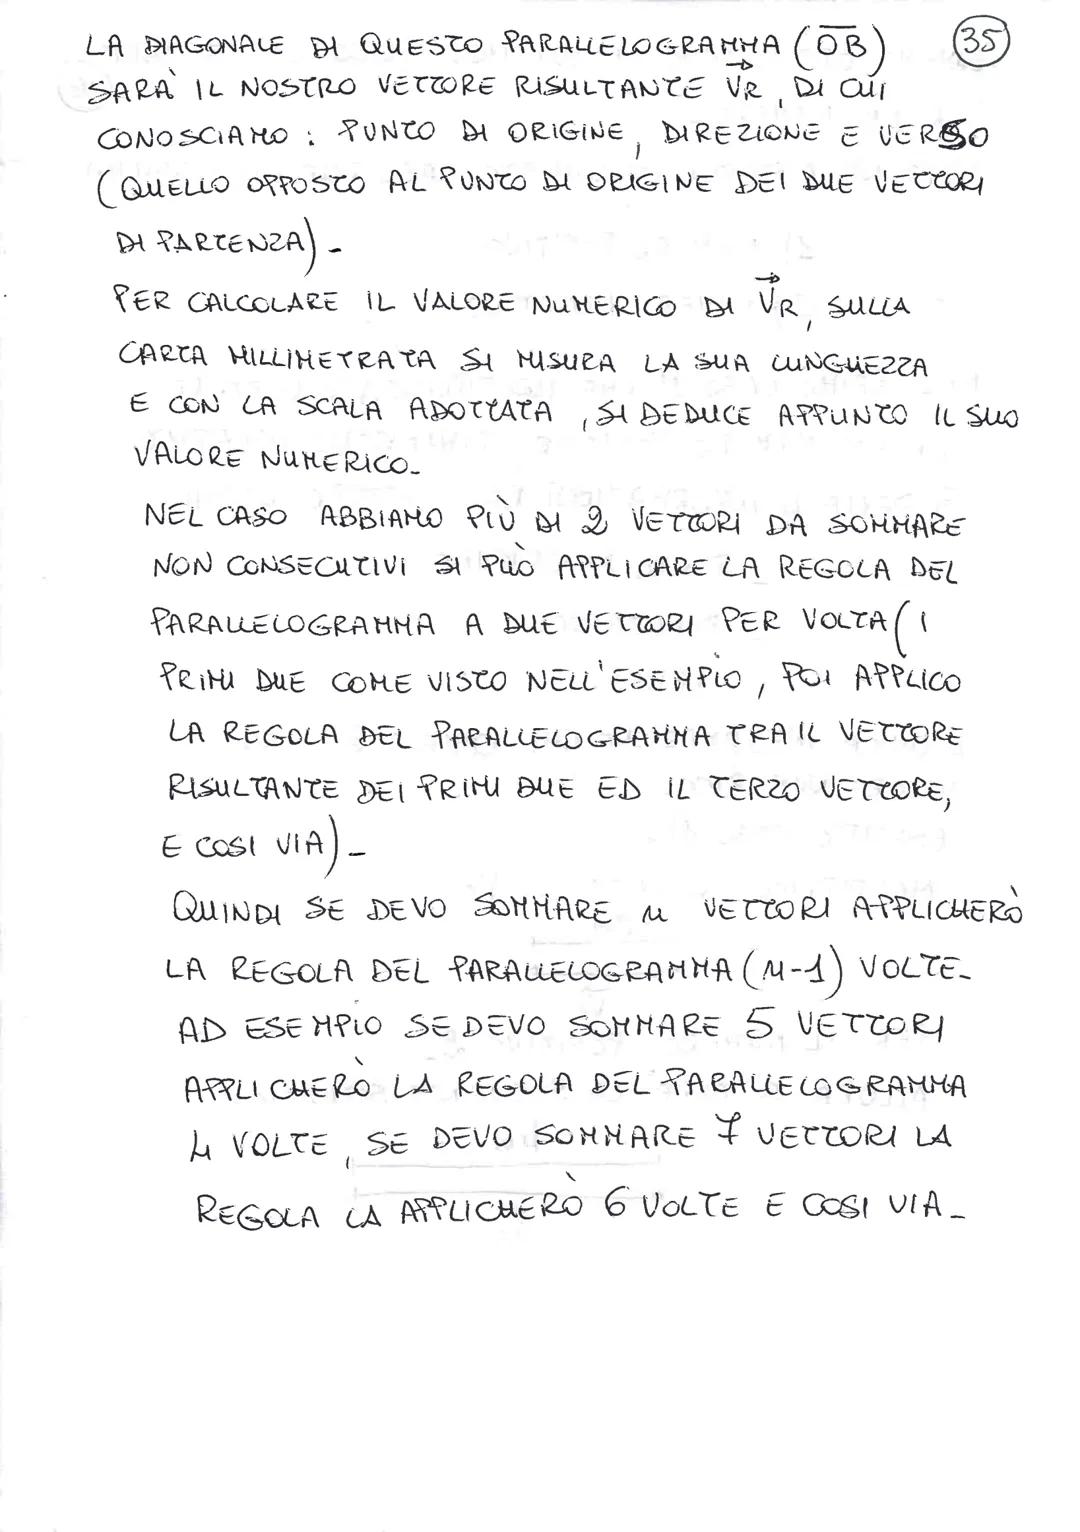 LA DIAGONALE DI QUESTO PARALLELOGRAMMA (OB) 35
SARÀ IL NOSTRO VETTORE RISULTANTE VR, DI CUI
CONOSCIAMO: PUNTO DI ORIGINE, DIREZIONE E VERSO
(QUELLO OPPOSTO AL PUNTO DI ORIGINE DEI DUE VETTORI
DI PARTENZA)-
PER CALCOLARE IL VALORE NUMERICO DI VR, SULLA
CARTA MILLIMETRATA SI MISURA LA SUA LUNGHEZZA
E CON LA SCALA ADOTTATA, SI DEDUCE APPUNTO IL SUO
VALORE NUMERICO-
NEL CASO ABBIAMO PIÙ DI 2 VETTORI DA SOMMARE
NON CONSECUTIVI SI PUÒ APPLICARE LA REGOLA DEL
PARALLELOGRAMMA A DUE VETTORI PER VOLTA (I
PRIMI DUE COME VISTO NELL'ESEMPIO, POI APPLICO
LA REGOLA DEL PARALLELOGRAMMA TRA IL VETTORE
RISULTANTE DEI PRIMI DUE ED IL TERZO VETTORE,
E COSI VIA)-
QUINDI SE DEVO SOMMARE n VETTORI APPLICHERÒ
LA REGOLA DEL PARALLELOGRAMMA (n-1) VOLTE-
AD ESEMPIO SE DEVO SOMMARE 5 VETTORI
APPLICHERÒ LA REGOLA DEL PARALLELOGRAMMA
4 VOLTE, SE DEVO SOMMARE 7 VETTORI LA
REGOLA LA APPLICHERÒ 6 VOLTE E COSI VIA-